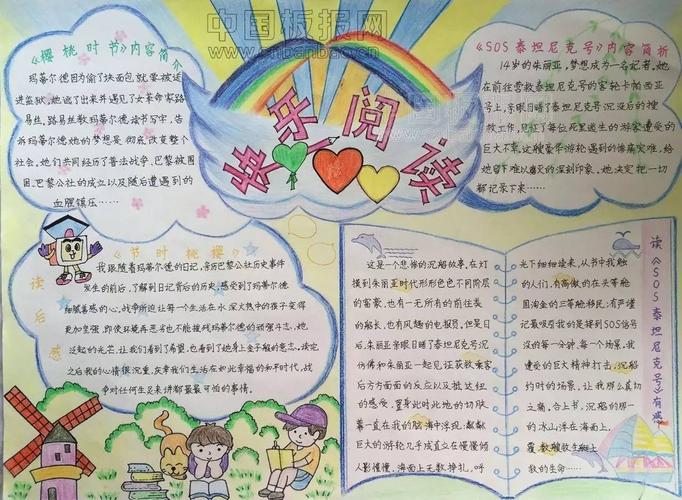 中国板报网
www.cnbanbao.cn
《樱桃时节》内容简介
玛蒂尔德因为偷了块面包就拿被送
进监狱,她逃了出来并遇见了女革命家路
易丝,路易丝教玛蒂尔德读书写字,告
诉玛蒂尔德她的梦想是彻底改变整个
社会。他们共同经历了普法战争、巴黎被围
困、巴黎公社的成立以及随后遭遇到的
血腥镇压……
快乐阅读
《SOS泰坦尼克号》内容简析
14岁的朱丽亚,梦想成为一名记者。她
在前往营救泰坦尼克号的客轮卡帕西亚
号上,亲眼目睹了泰坦尼克号沉没后的搜
救工作,见证了每位死里逃生的游客遭受的
巨大不幸。这艘豪华游轮遇到的惨痛灾难,给
她留下难以磨灭的深刻印象。她决定把一切
都记录下来……
《樱桃时节》
读后感
我跟随着玛蒂尔德的日记,亲历巴黎公社历史事件
发生的前后,了解到日记背后的历史,感受到了玛蒂尔德
细腻善感的心。战争所迫让每一个生活在水深火热中的孩子变得
更加坚强,即使环境再恶劣也不能摧残玛蒂尔德的顽强斗志。她
泛起的光芒,让我们看到了希望,也看到了她身上金子般的意志。读完
之后我的心情很沉重,庆幸我们生活在如此幸福的和平时代,战
争对任何生灵来讲都是最可怕的事情。
读《SOS泰坦尼克号》有感
这是一个悲惨的沉船故事,在灯
光下细细读来,从书中我触
摸到朱丽亚时代形形色色不同阶层
的人们,有高傲的在头等舱
的富豪,也有一无所有的前往美
国淘金的三等舱移民;有严谨
的船长,也有风趣的电报员。但是日
记最吸引我的是择到SOS信号
后,朱丽亚亲眼目睹了泰坦尼克号沉
没的每一分钟,每一个场景,我
仿佛和朱丽亚一起见证获救乘客
遭受的巨大精神打击,沉船
后方方面面的反应以及抵达纽约
约时的场景,让我那么真切
的感受,置身此时此地的切肤
之痛,合上书,沉船的那一
幕一直在我的脑海中浮现:黝黝
的冰山浮在海面上,
巨大的游轮几乎成直立在慢慢倾
人影憧憧,海面上无数挣扎,呼
救的生命……